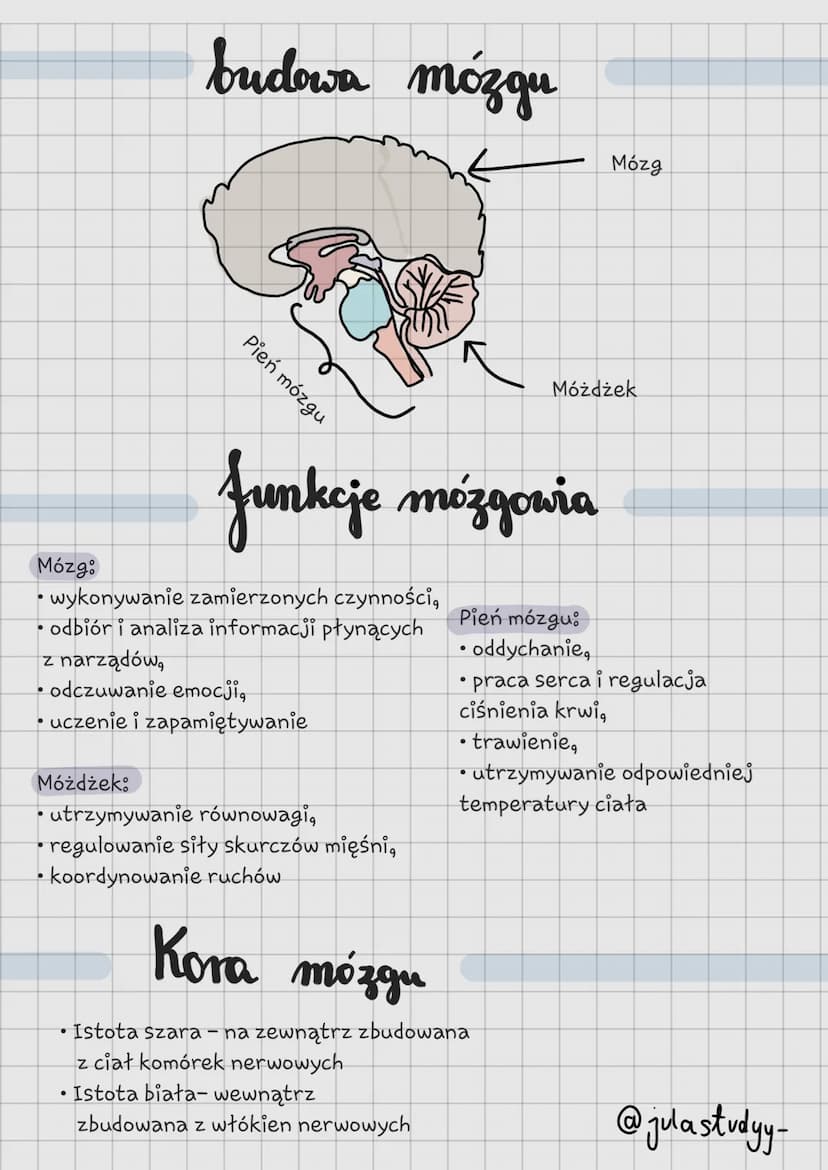 budowa mózgu
Mózg
Pień mózgu
Móżdżek
funkcje mózgowia
Mózg:
• wykonywanie zamierzonych czynności,
• odbiór i analiza informacji płynących
z narządów,
• odczuwanie emocji,
• uczenie i zapamiętywanie
Móżdżek:
• utrzymywanie równowagi,
• regulowanie siły skurczów mięśni,
• koordynowanie ruchów
Pień mózgu:
• oddychanie,
• praca serca i regulacja
ciśnienia krwi,
• trawienie,
• utrzymywanie odpowiedniej
temperatury ciała
Kora mózgu
• Istota szara – na zewnątrz zbudowana
z ciał komórek nerwowych
• Istota biała– wewnątrz
zbudowana z włókien nerwowych
@julastudyy-